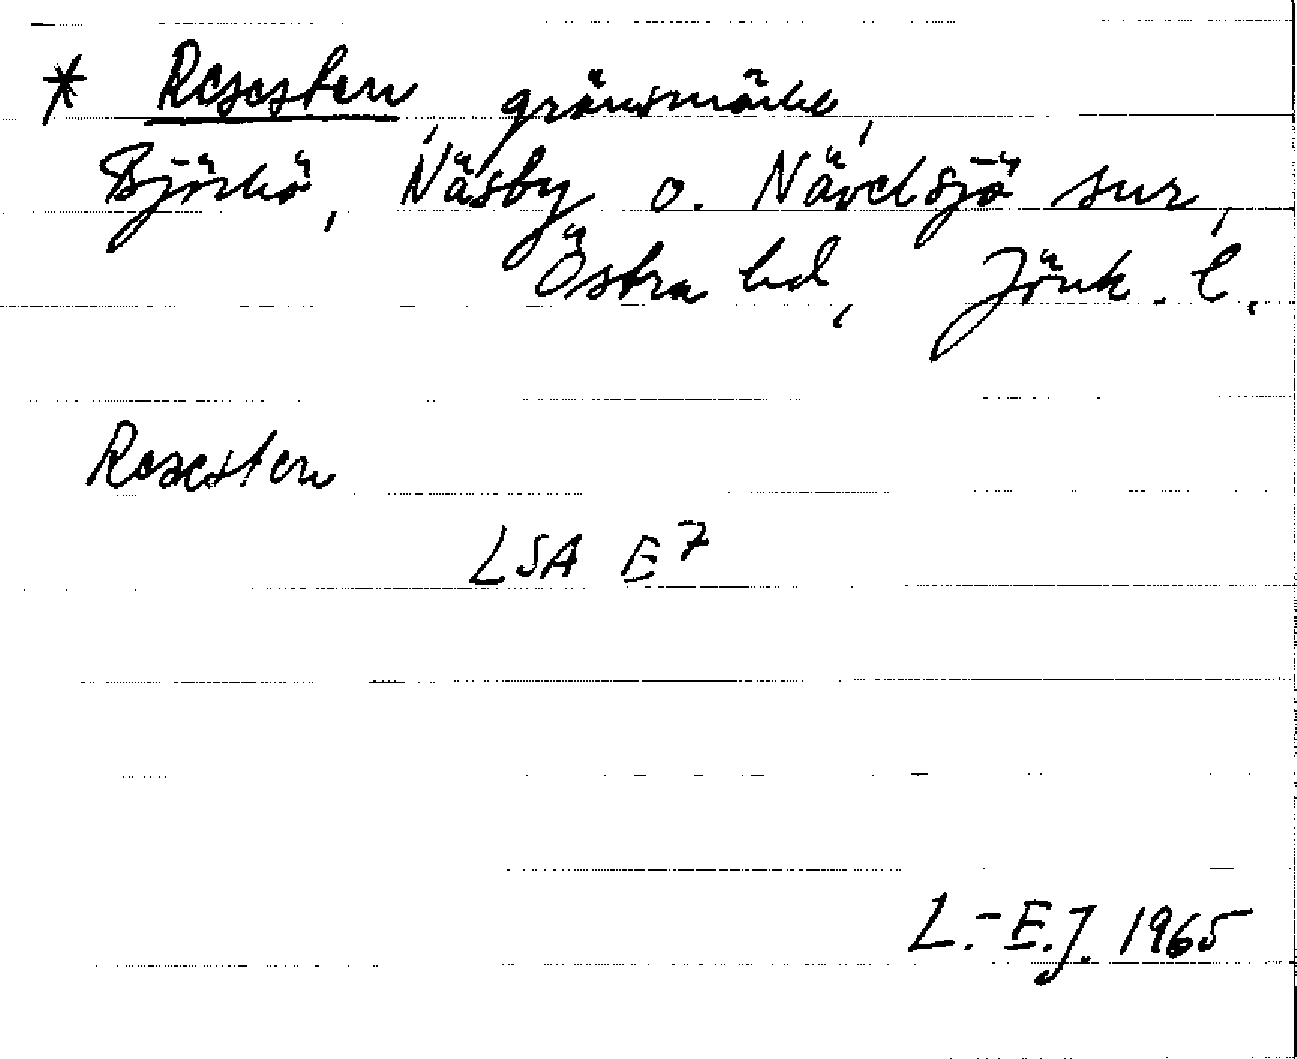 * Resesten, gränsmärke,
Björkö, Näsby o. Nävelsjö snr,
Östra hd, Jönk. l.
Resesten
LSA E7
L.-E.J. 1965